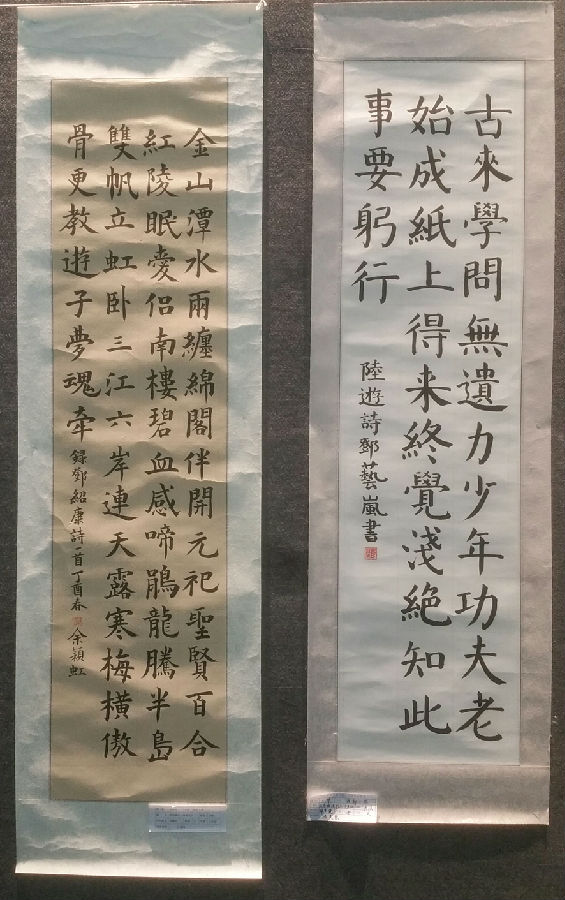 古來學問無遺力少年功夫老
始成紙上得来終覺淺絕知此
事要躬行
陸遊詩鄧藝嵐書
金山潭水雨纏綿閣伴開元祀聖賢百合
紅陵眠愛侣南樓碧血感啼鵑龍騰半島
雙帆立虹卧三江六岸連天露寒梅橫傲
骨更教遊子夢魂牽
錄鄧紹康詩一首丁酉春
余穎虹